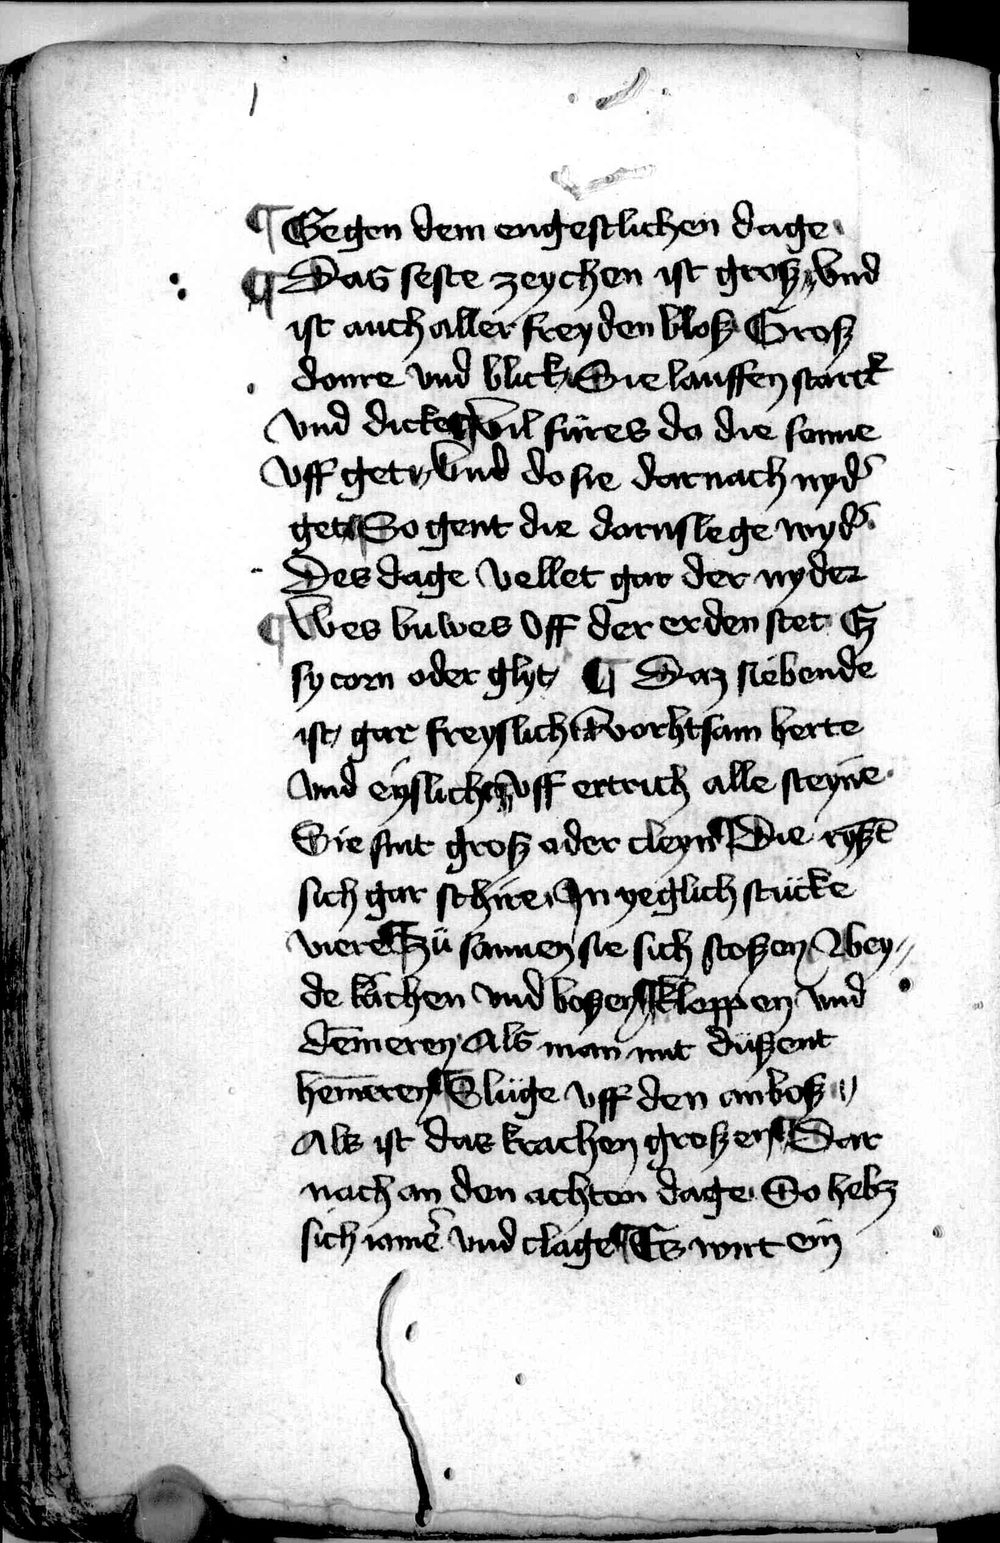 ¶ Gegen dem engestlichen dage
¶ Das seste zeychen ist grosz Vnd
ist auch aller freyden blosz Grosz
donre vnd blick Sie lauffen starck
Vnd dicke Vil füres do die sonne
Vff get Vnd do sie darnach nyd'
get So gent die dornslege wyd'
Des dage vellet gar der nyder
¶ Wes buwes vff der erden stet Ez
sy corn oder glyt ¶ Daz siebende
ist gar freyslich vorhtsam herte
Vnd eyslich vff ertrich alle steyne
Sie sint grosz oder cleyn Die
sich gar schire In yeglich stücke
viere Zü samen sie sich stoszen Bey
de krachen vnd boszen kloppen vnd
dem̄eren Als man mit düszent
hem̄eren Slüge vff den anbosz
Als ist das krachen groszen Dar
nach an den achten dage So hebz
sich iamer vnd clage Es wirt ein